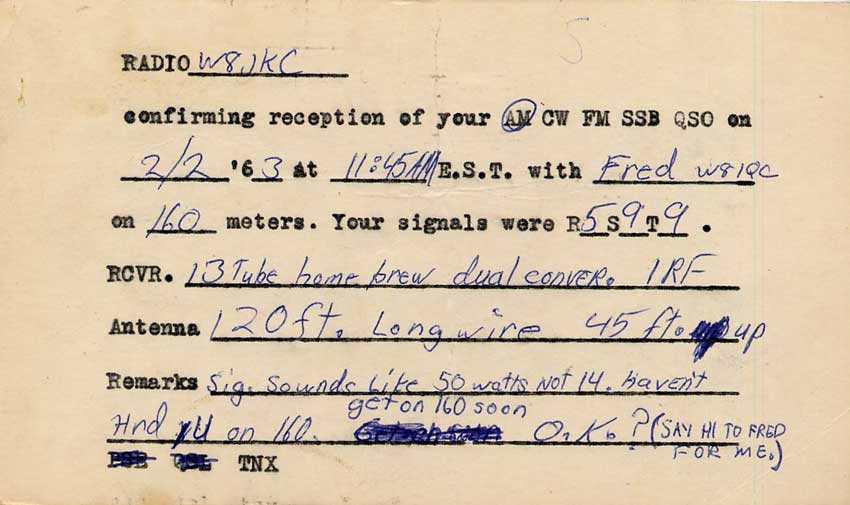 RADIO W8JKC
confirming reception of your AM CW FM SSB QSO on
2/2 '63 at 11:45AM E.S.T. with Fred W8IQC
on 160 meters. Your signals were R5S9T9.
RCVR. 13 Tube home brew dual conver. 1RF
Antenna 120ft. Long wire 45 ft. up
Remarks Sig. Sounds Like 50 watts Not 14. haven't
get on 160 soon
Hrd U on 160. O.K.? (SAY HI TO FRED
FOR ME.)
PSE QSL TNX